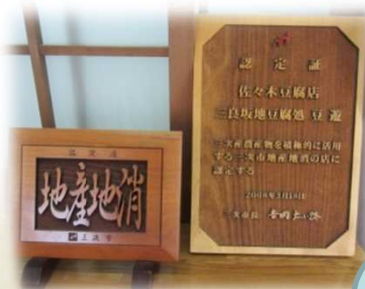 認定店
地産地消
三次市
認定証
佐々木豆腐店
三良坂地豆腐処 豆遊
三次産農産物を積極的に活用
する三次市地産地消の店に
認定する
2008年3月18日
三次市長